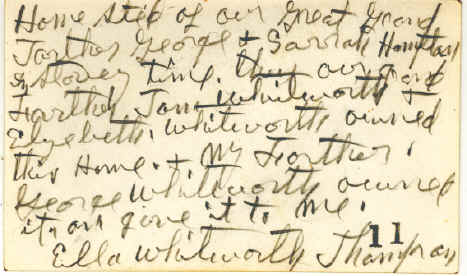 Home Sted of our Great Grand
Farther George & Sarrah Hampton
in Slovery time. they our Grand
Farther Jam Whitworth +
Elyzebeth. Whitworth owned
this Home. + My Farther.
George Whitworth owned
it an give it to me.
11
Ella Whitworth Thompson